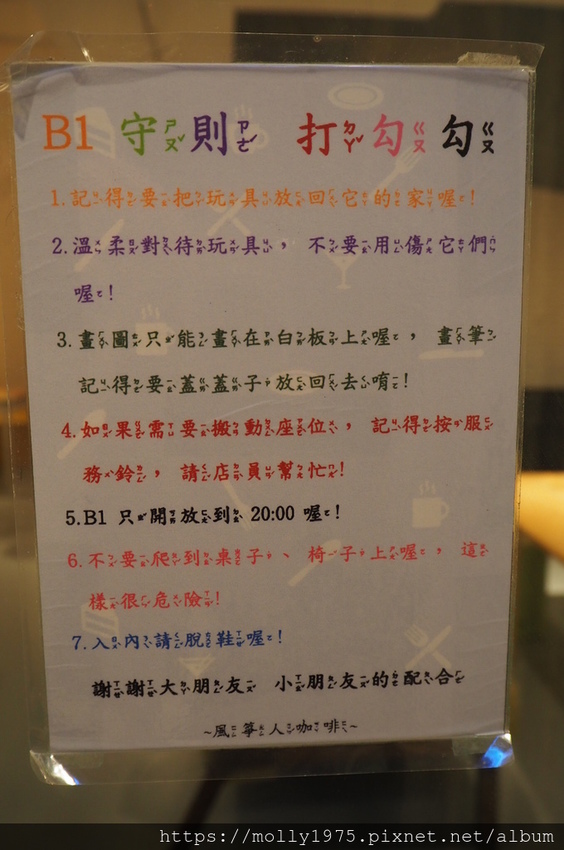 B1 守則 打勾勾
1.記得要把玩具放回它的家喔!
2.溫柔對待玩具, 不要用傷它們
喔!
3.畫圖只能畫在白板上喔, 畫筆
記得要蓋蓋子放回去唷!
4.如果需要搬動座位, 記得按服
務鈴, 請店員幫忙!
5.B1 只開放到 20:00 喔!
6.不要爬到桌子、椅子上喔, 這
樣很危險!
7.入內請脫鞋喔!
謝謝大朋友 小朋友的配合
~風箏人咖啡~
https://molly1975.pixnet.net/album